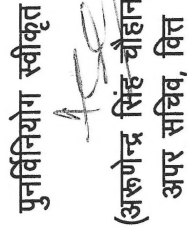 पुनर्विनियोग स्वीकृत
(अरूणेन्द्र सिंह चौहान
अपर सचिव, वित्त